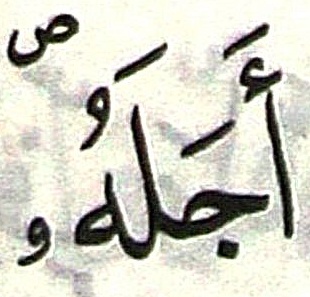 أَجَلَهُۥۖ